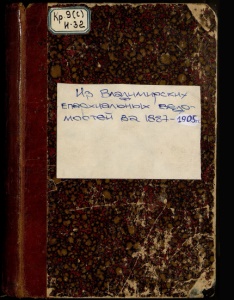 Кр 9(с)
И-32
Из Владимирских
епархиальных ведо-
мостей за 1887-1905г.